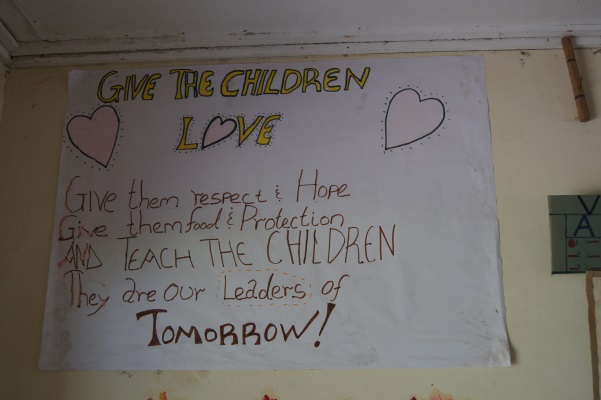 GIVE THE CHILDREN
LOVE
GIVE them respect & HOPE
Give them food & Protection
AND TEACH THE CHILDREN
They are our Leaders of
TOMORROW!
V
A